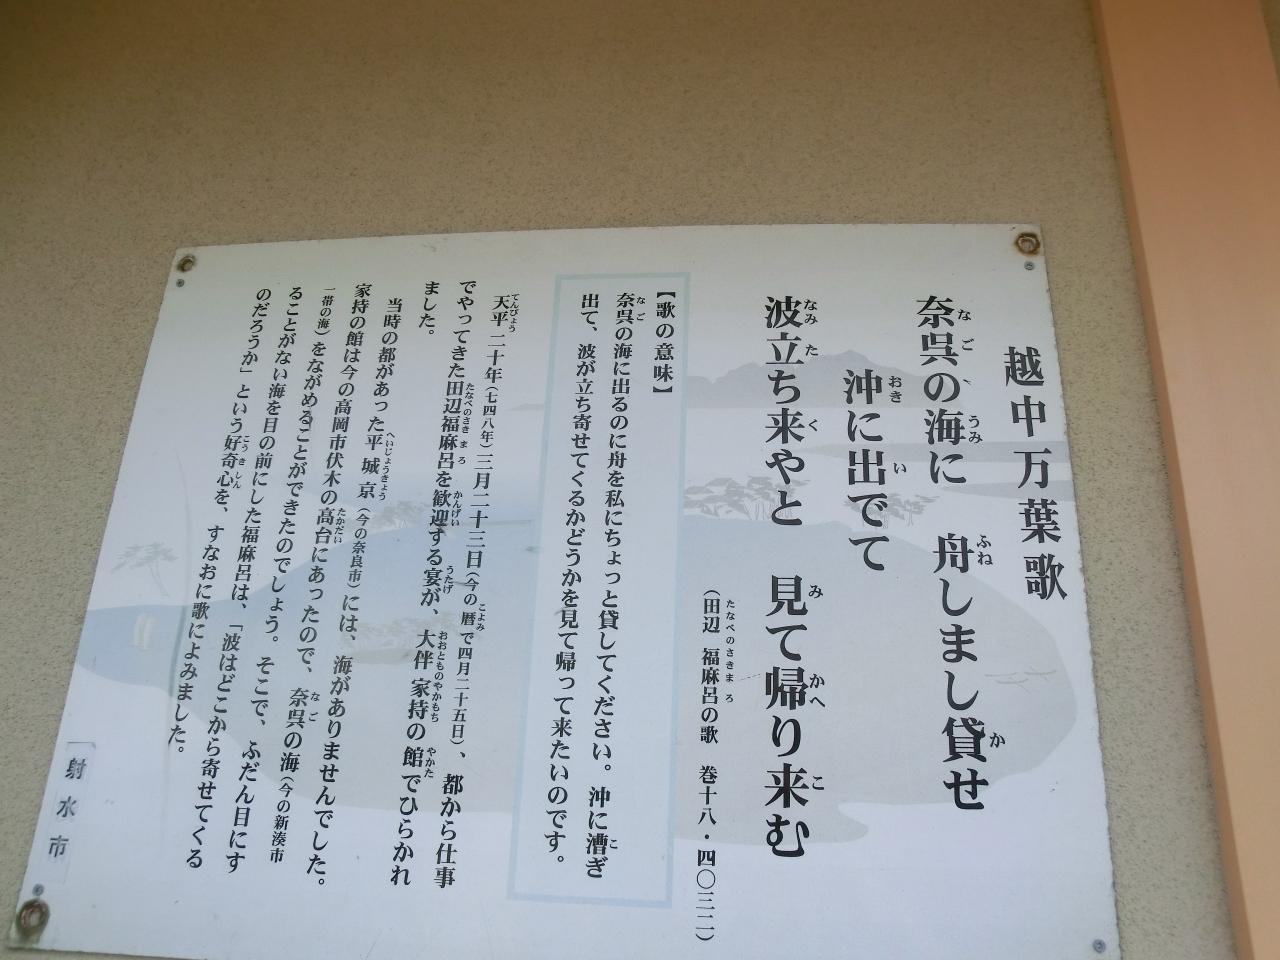 越中万葉歌
奈呉の海に 舟しまし貸せ
沖に出でて
波立ち来やと 見て帰り来む
(田辺 福麻呂の歌 巻十八・四〇三二)
【歌の意味】
奈呉の海に出るのに舟を私にちょっと貸してください。沖に漕ぎ
出て、波が立ち寄せてくるかどうかを見て帰って来たいのです。
天平二十年(七四八年)三月二十三日(今の暦で四月二十五日)、都から仕事
でやってきた田辺福麻呂を歓迎する宴が、大伴家持の館でひらかれ
ました。
当時の都があった平城京(今の奈良市)には、海がありませんでした。
家持の館は今の高岡市伏木の高台にあったので、奈呉の海(今の新湊市
一帯の海)をながめることができたのでしょう。そこで、ふだん目にす
ることがない海を目の前にした福麻呂は、「波はどこから寄せてくる
のだろうか」という好奇心を、すなおに歌によみました。
射水市